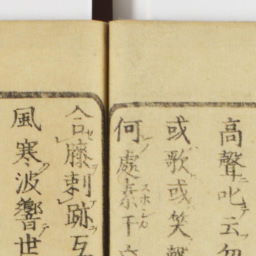 高聲叱云勿
或歌或笑聲
何處素千
合膝刺跡互
風寒波響世